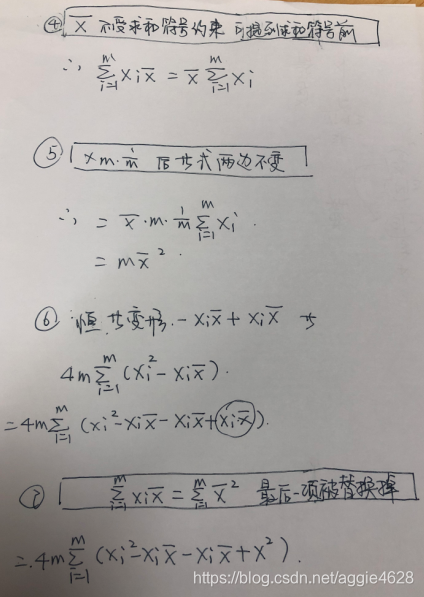 ④ x̄ 不受求和符号约束 可提到求和符号前
∴ Σ_{i=1}^{m} xi x̄ = x̄ Σ_{i=1}^{m} xi
⑤ × m · 1/m 后 等式两边不变
∴ = x̄ · m · 1/m Σ_{i=1}^{m} xi
= m x̄²
⑥ 恒等变形 - xi x̄ + xi x̄ 为
4m Σ_{i=1}^{m} (xi² - xi x̄).
= 4m Σ_{i=1}^{m} (xi² - xi x̄ - xi x̄ + xi x̄).
⑦ Σ_{i=1}^{m} xi x̄ = Σ_{i=1}^{m} x̄² 最后一项被替换掉
= 4m Σ_{i=1}^{m} (xi² - xi x̄ - xi x̄ + x²).
https://blog.csdn.net/aggie4628